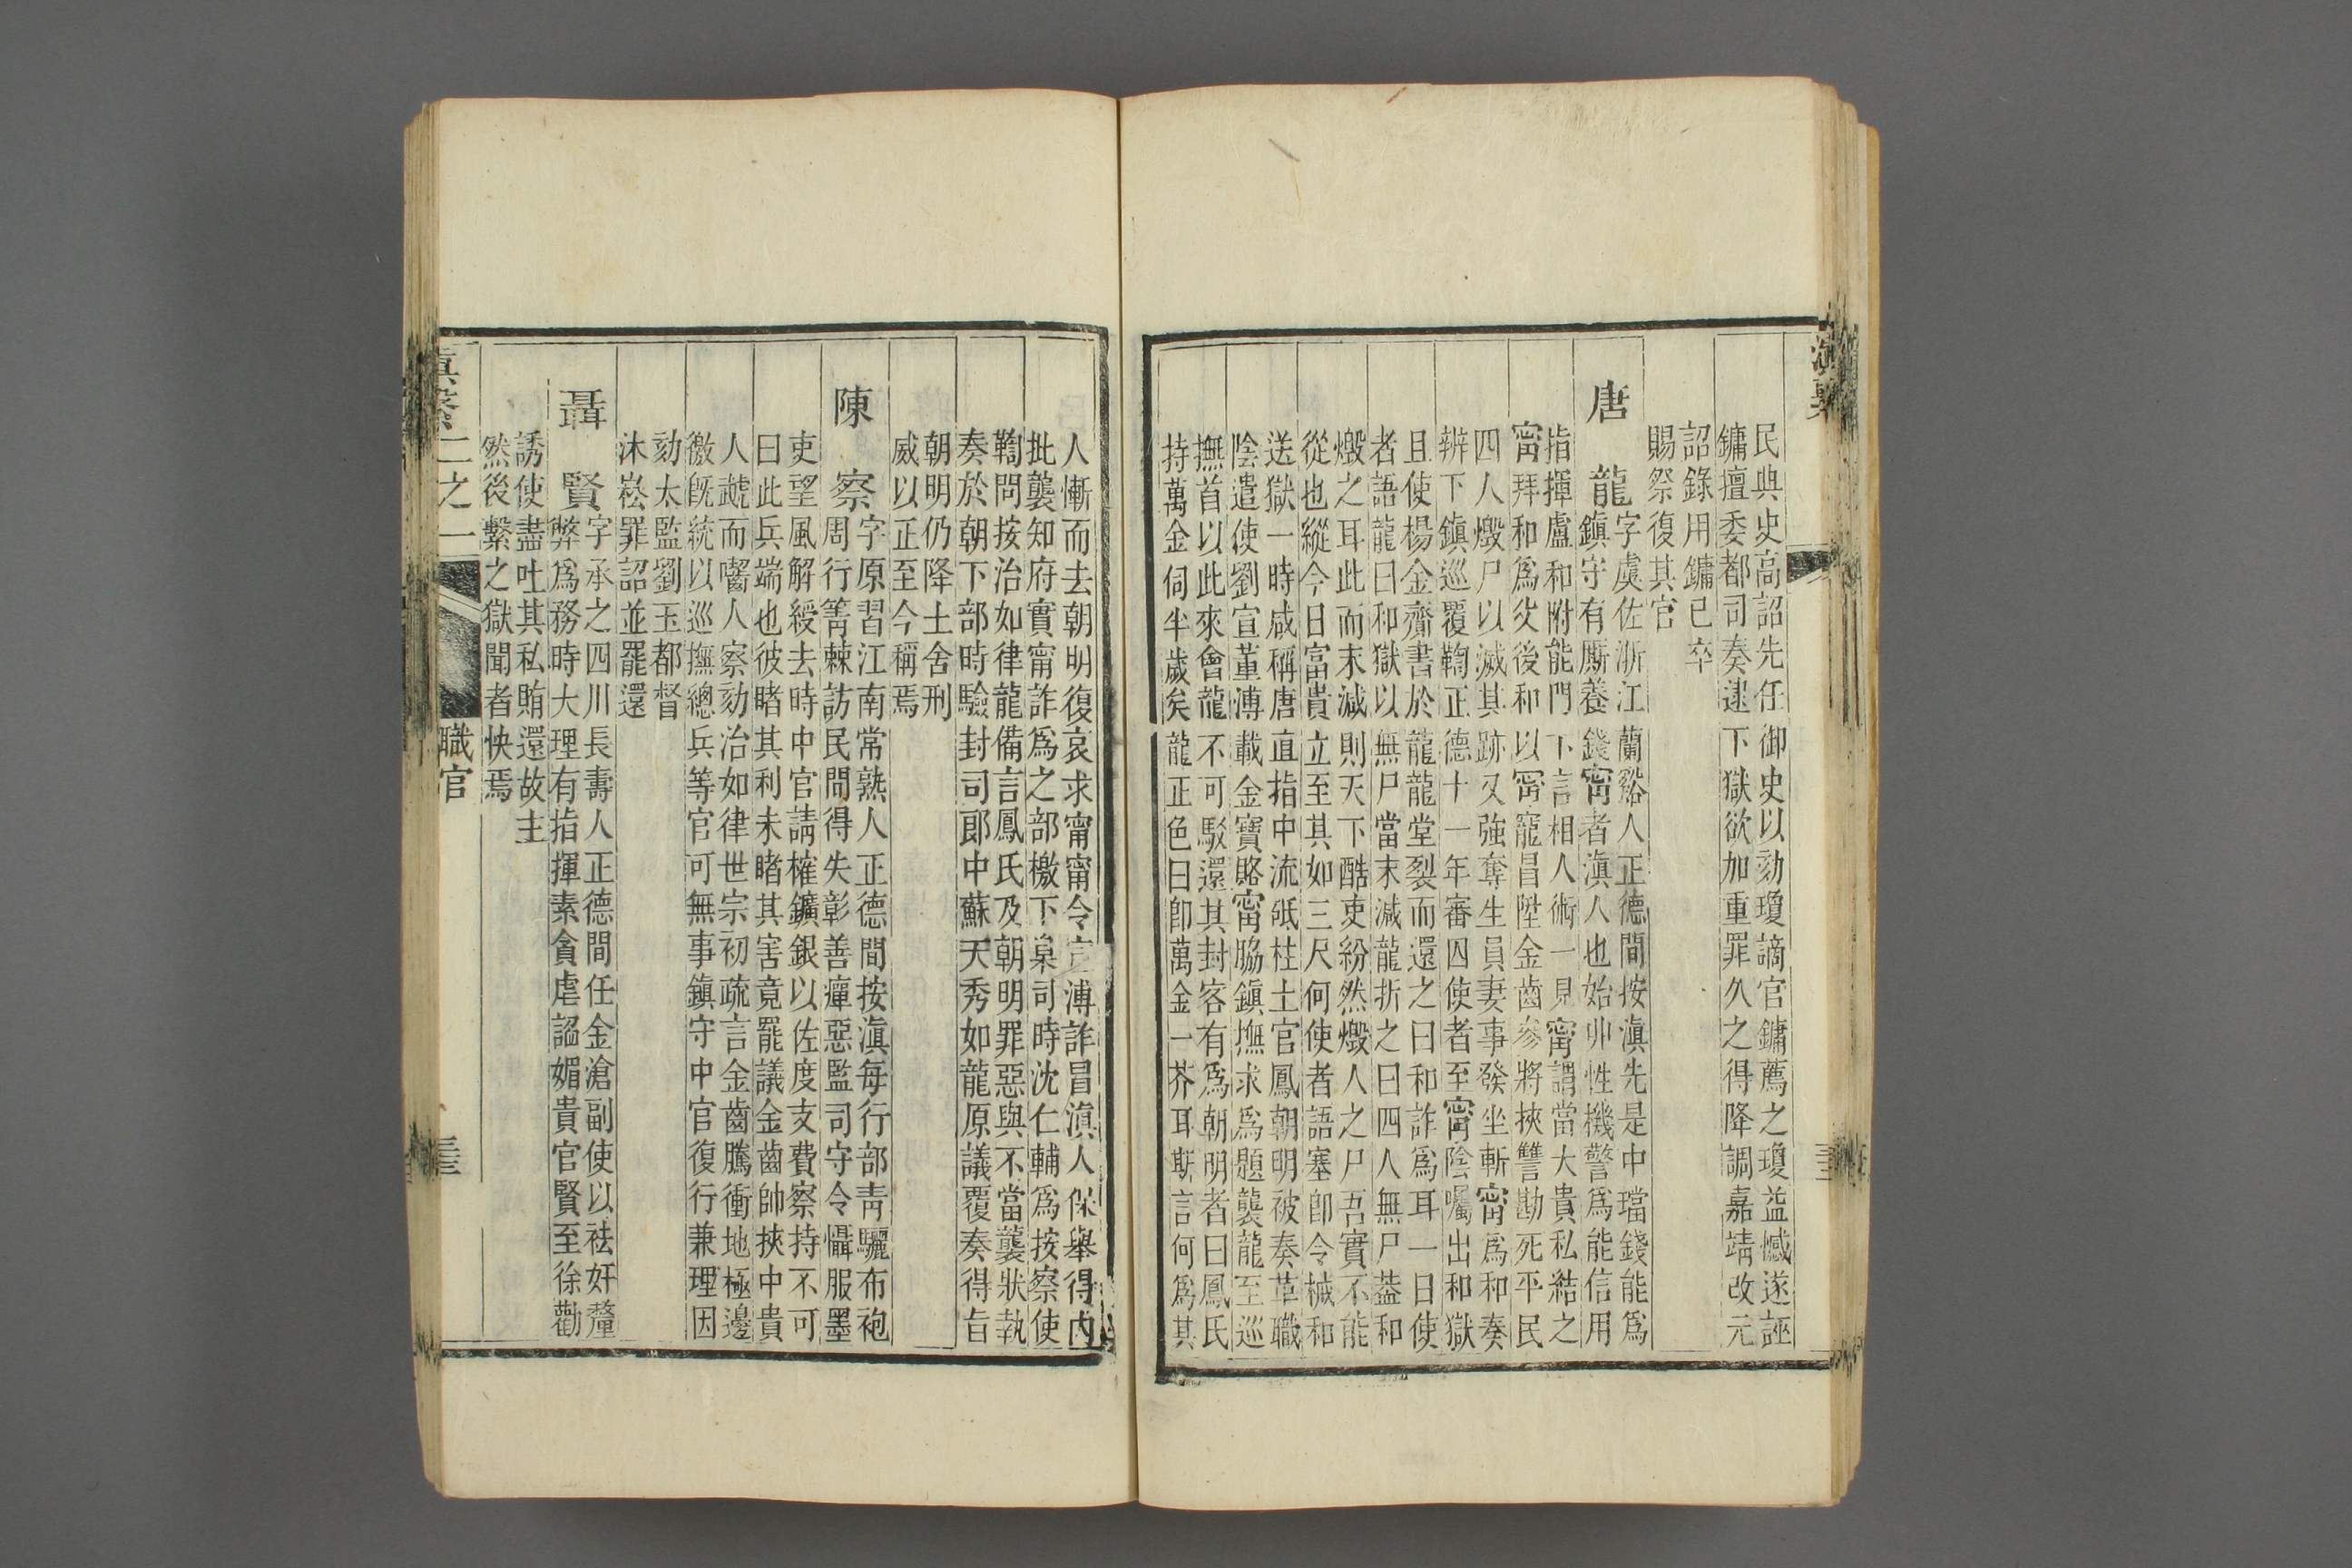 民與史高詔先任御史以劾瓊謫官鏞薦之瓊益憾遂誣
鏞擅委都司奏逮下獄欲加重罪久之得降調嘉靖改元
詔錄用鏞已卒
賜祭復其官
唐龍字虞佐浙江蘭谿人正德間按滇先是中璫錢能爲
鎮守有厮養錢甯者滇人也始丱性機警爲能信用
指揮盧和附能門下言相人術一見甯謂當大貴私結之
甯拜和爲父後和以甯寵昌陞金齒參將挾讐勘死平民
四人燬尸以滅其跡又強奪生員妻事發坐斬甯爲和奏
辨下鎮巡覆鞫正德十一年審囚使者至甯陰囑出和獄
且使楊金齋書於龍龍堂裂而還之曰和詐爲耳一日使
者語龍曰和獄以無尸當末減龍折之曰四人無尸葢和
燬之耳此而末減則天下酷吏紛然燬人之尸吾實不能
從也縱今日富貴立至其如三尺何使者語塞卽令械和
送獄一時咸稱唐直指中流砥柱土官鳳朝明被奏革職
陰遣使劉宣董溥載金寶賂甯脇鎮撫求爲題襲龍至巡
撫首以此來會龍不可駁還其封客有爲朝明者曰鳳氏
持萬金伺半歲矣龍正色曰卽萬金一芥耳斯言何爲其
人慚而去朝明復哀求甯甯令宣溥詐冒滇人保舉得內
批襲知府實甯詐爲之部檄下臬司時沈仁輔爲按察使
鞫問按治如律龍備言鳳氏及朝明罪惡與不當襲狀執
奏於朝下部時驗封司郎中蘇天秀如龍原議覆奏得旨
朝明仍降土舍刑
威以正至今稱焉
陳察字原習江南常熟人正德間按滇每行部靑驪布袍
周行箐棘訪民間得失彰善癉惡監司守令懾服墨
吏望風解綬去時中官請榷鑛銀以佐度支費察持不可
曰此兵端也彼睹其利未睹其害竟罷議金齒帥挾中貴
人虣而嚙人察劾治如律世宗初疏言金齒騰衝地極邊
徼旣統以巡撫總兵等官可無事鎮守中官復行兼理因
劾太監劉玉都督
沐崧罪詔並罷還
聶賢字承之四川長壽人正德間任金滄副使以祛奸釐
弊爲務時大理有指揮素貪虐謟媚貴官賢至徐勸
誘使盡吐其私賄還故主
然後繫之獄聞者快焉
滇繫二之一 職官